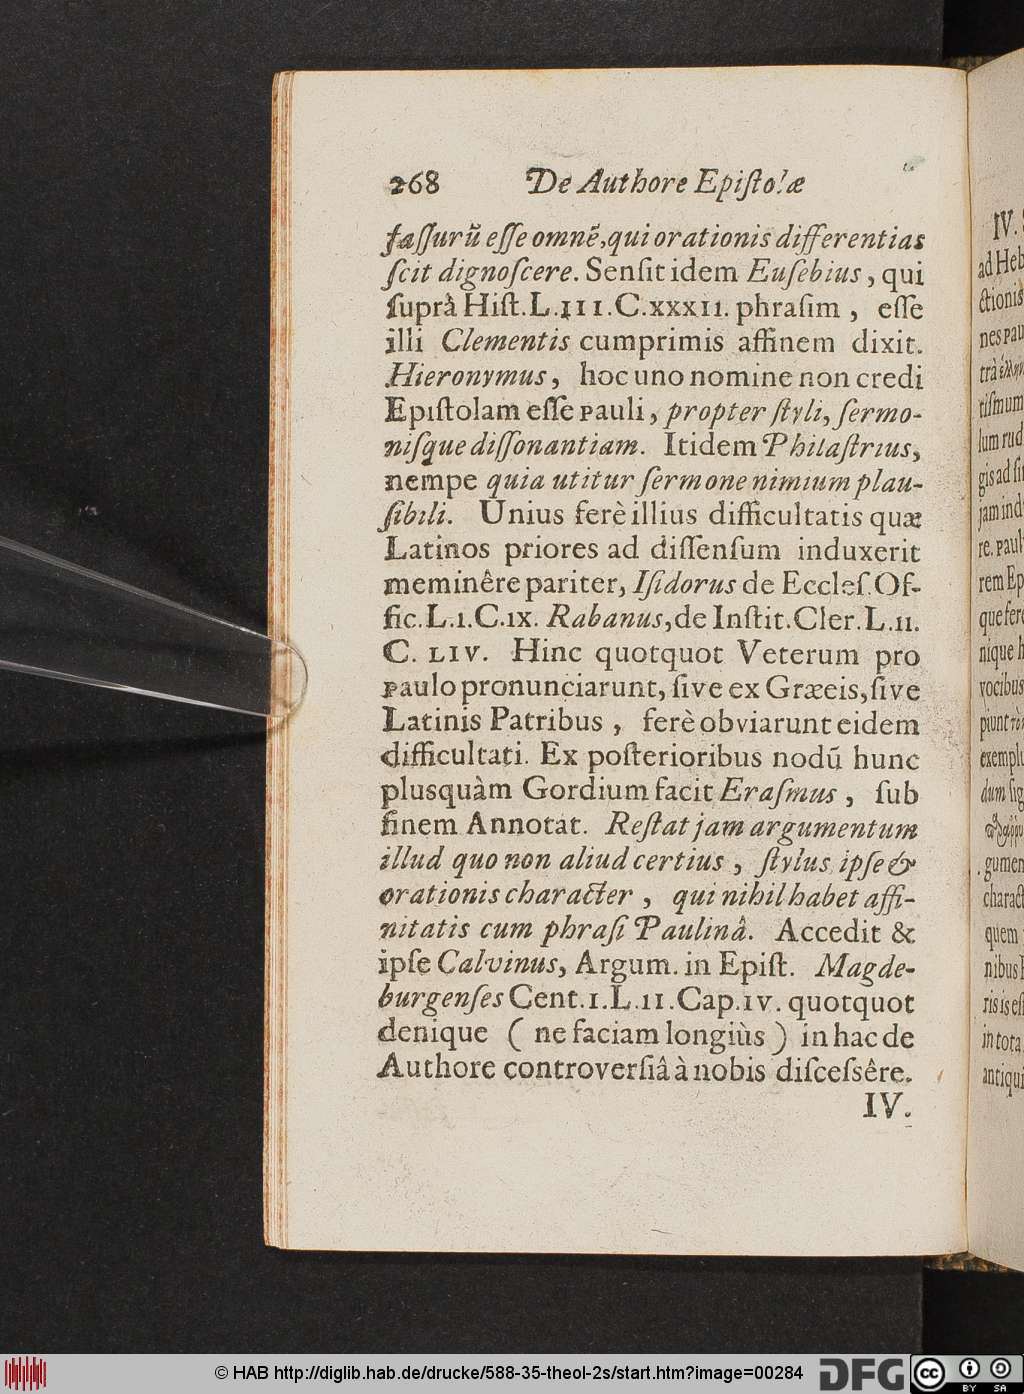 268 De Authore Epiſtolæ
ſaſſurũ eſſe omnẽ, qui orationis differentias
ſcit dignoſcere. Senſit idem Euſebius, qui
ſuprà Hiſt. L. III. C. XXXII. phraſim, eſſe
illi Clementis cumprimis affinem dixit.
Hieronymus, hoc uno nomine non credi
Epiſtolam eſſe Pauli, propter ſtyli, ſermo-
niſque diſſonantiam. Itidem Philaſtrius,
nempe quia utitur ſermone nimium plau-
ſibili. Unius ferè illius difficultatis quæ
Latinos priores ad diſſenſum induxerit
meminêre pariter, Iſidorus de Eccleſ. Of-
fic. L. I. C. IX. Rabanus, de Inſtit. Cler. L. II.
C. LIV. Hinc quotquot Veterum pro
Paulo pronunciarunt, ſive ex Græcis, ſive
Latinis Patribus, ferè obviarunt eidem
difficultati. Ex poſterioribus nodũ hunc
plusquàm Gordium facit Eraſmus, ſub
finem Annotat. Reſtat jam argumentum
illud quo non aliud certius, ſtylus ipſe &
orationis character, qui nihil habet affi-
nitatis cum phraſi Paulinâ. Accedit &
ipſe Calvinus, Argum. in Epiſt. Magde-
burgenſes Cent. I. L. II. Cap. IV. quotquot
denique ( ne faciam longiùs ) in hac de
Authore controverſiâ à nobis diſceſsêre.
IV.
IV.
ad Heb
ctionis
nes Pau
trà
tiſmum
lum rud
gis ad ſi
jam ind
re. Paul
rem Ep
que fere
nique h
vocibus
piunt
exemplu
dum ſig
gumen
charact
quem
nibus
ris is eſ
in tota
antiqui
© HAB http://diglib.hab.de/drucke/588-35-theol-2s/start.htm?image=00284 DFG cc BY SA